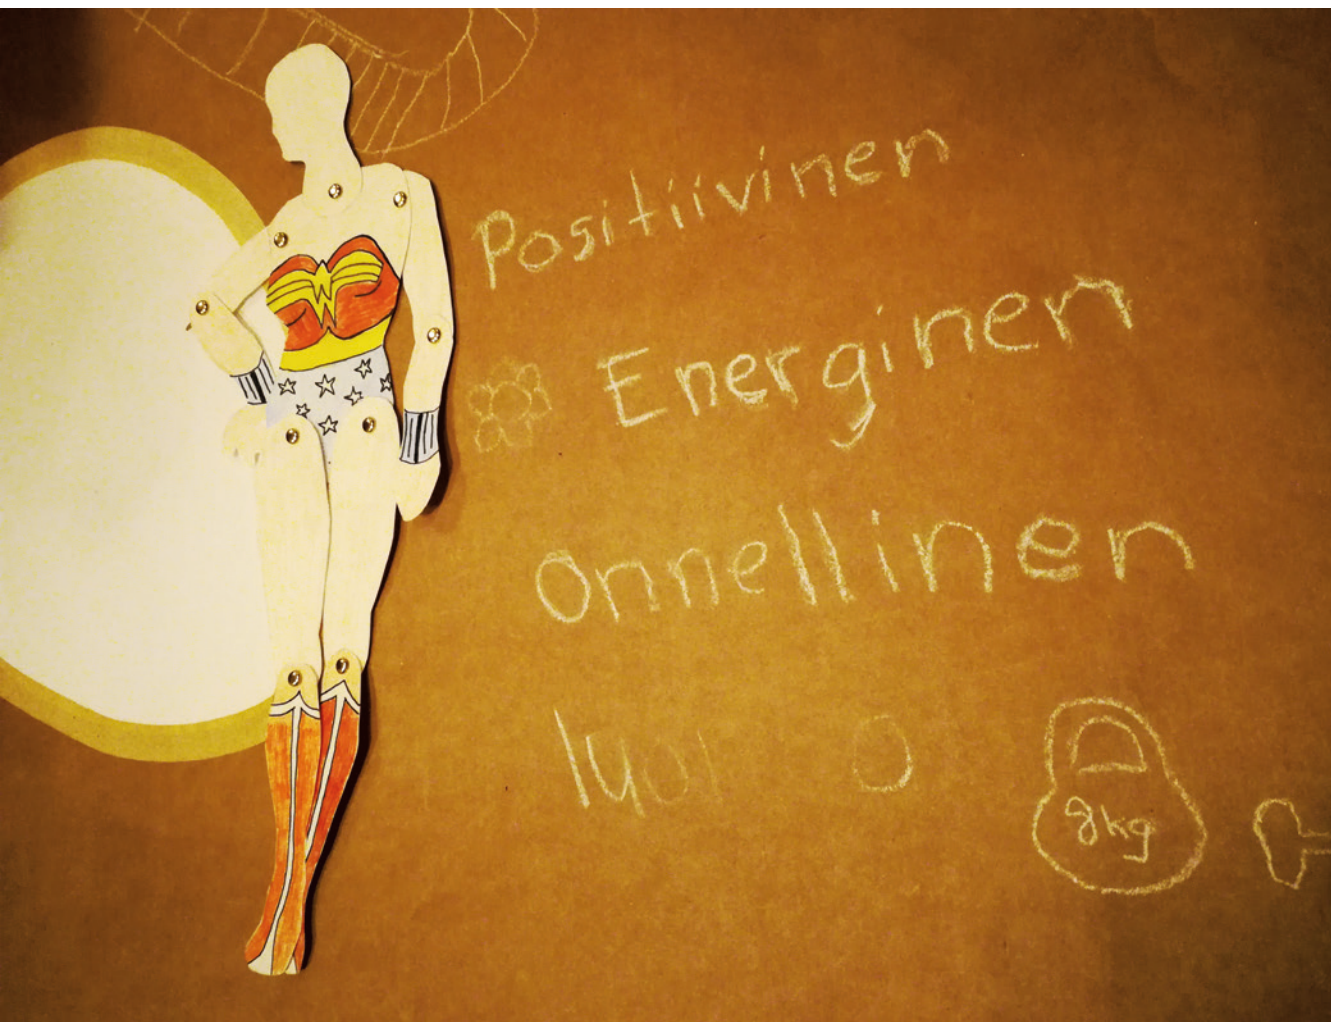 Positiivinen
Energinen
onnellinen
8kg